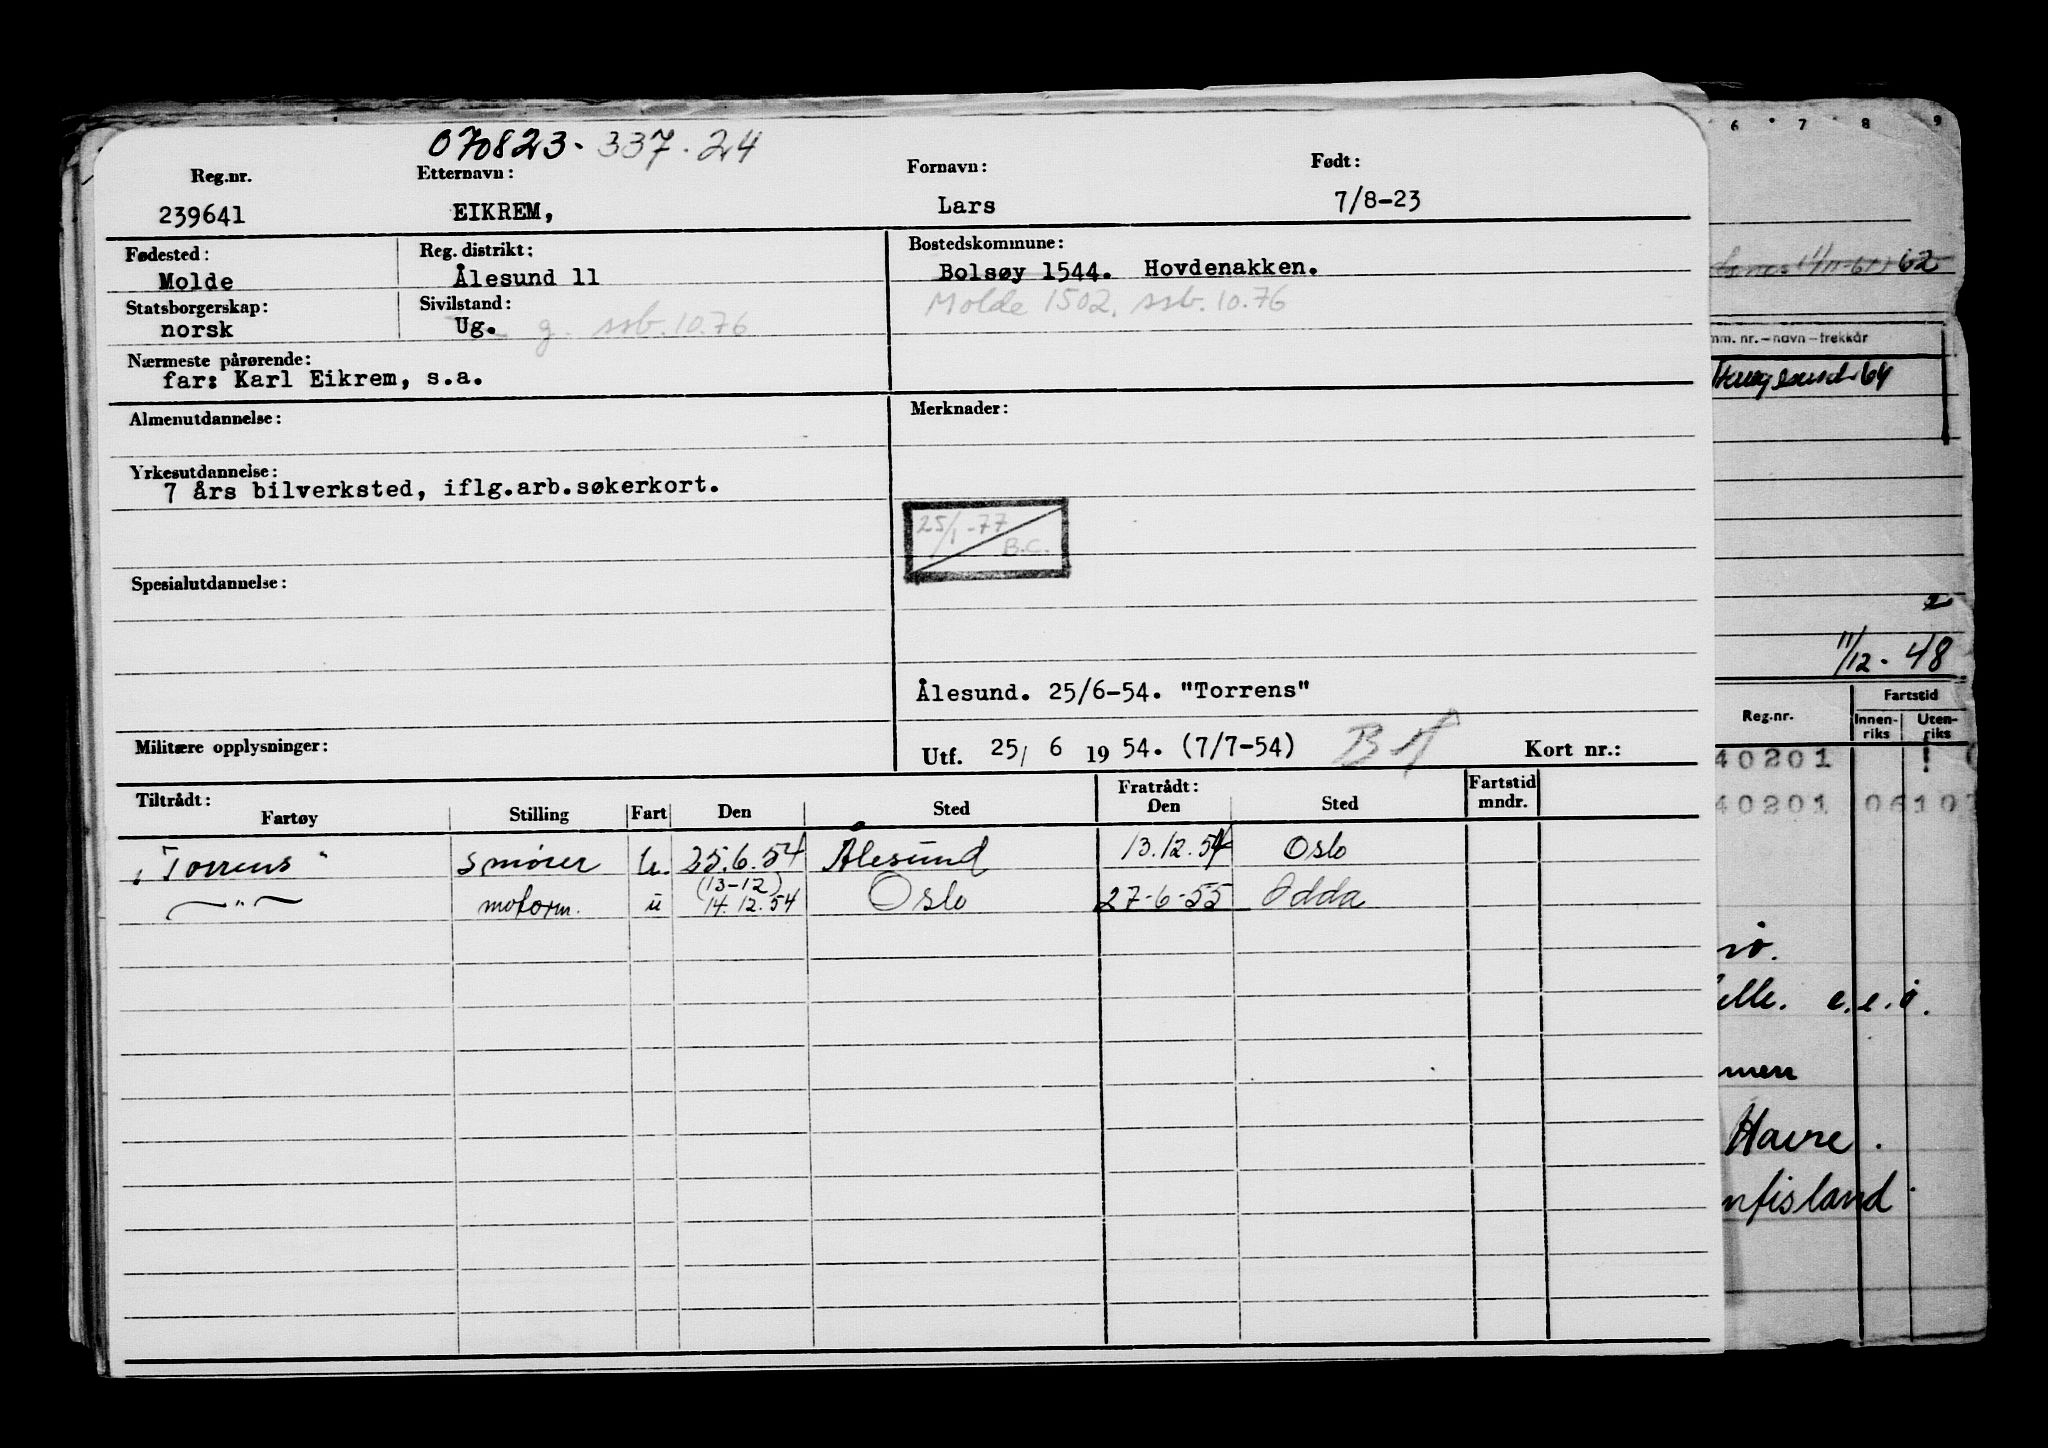 070823. 337.24
Reg.nr. Etternavn: Fornavn: Født:
239641 EIKREM, Lars 7/8-23
Fødested: Reg. distrikt: Bostedskommune:
Molde Ålesund 11 Bolsøy 1544. Hovdenakken.
Statsborgerskap: Sivilstand: Molde 1502. ssb. 10.76
norsk Ug. g. ssb. 10.76
Nærmeste pårørende:
far: Karl Eikrem, s.a.
Almenutdannelse: Merknader:
Yrkesutdannelse:
7 års bilverksted, iflg.arb.søkerkort.
25/1-77
B.C.
Spesialutdannelse:
Ålesund. 25/6-54. "Torrens"
Militære opplysninger: Utf. 25/ 6 19 54. (7/7-54) Kort nr.:
Tiltrådt: Fratrådt: Fartstid
Fartøy Stilling Fart Den Sted Den Sted mndr.
"Torrens" smører u. 25.6.54 Ålesund 13.12.54 Oslo
(13-12)
—"— motorm. u 14.12.54 Oslo 27-6-55 Odda
6 7 8 9
62
mm. nr. – navn – trekkår
Haugesund 64
2
11/12 - 48
Fartstid
Reg.nr. Innen- Uten-
riks riks
40201 !
40201 06
elle. e.e.ö.
men
Havre.